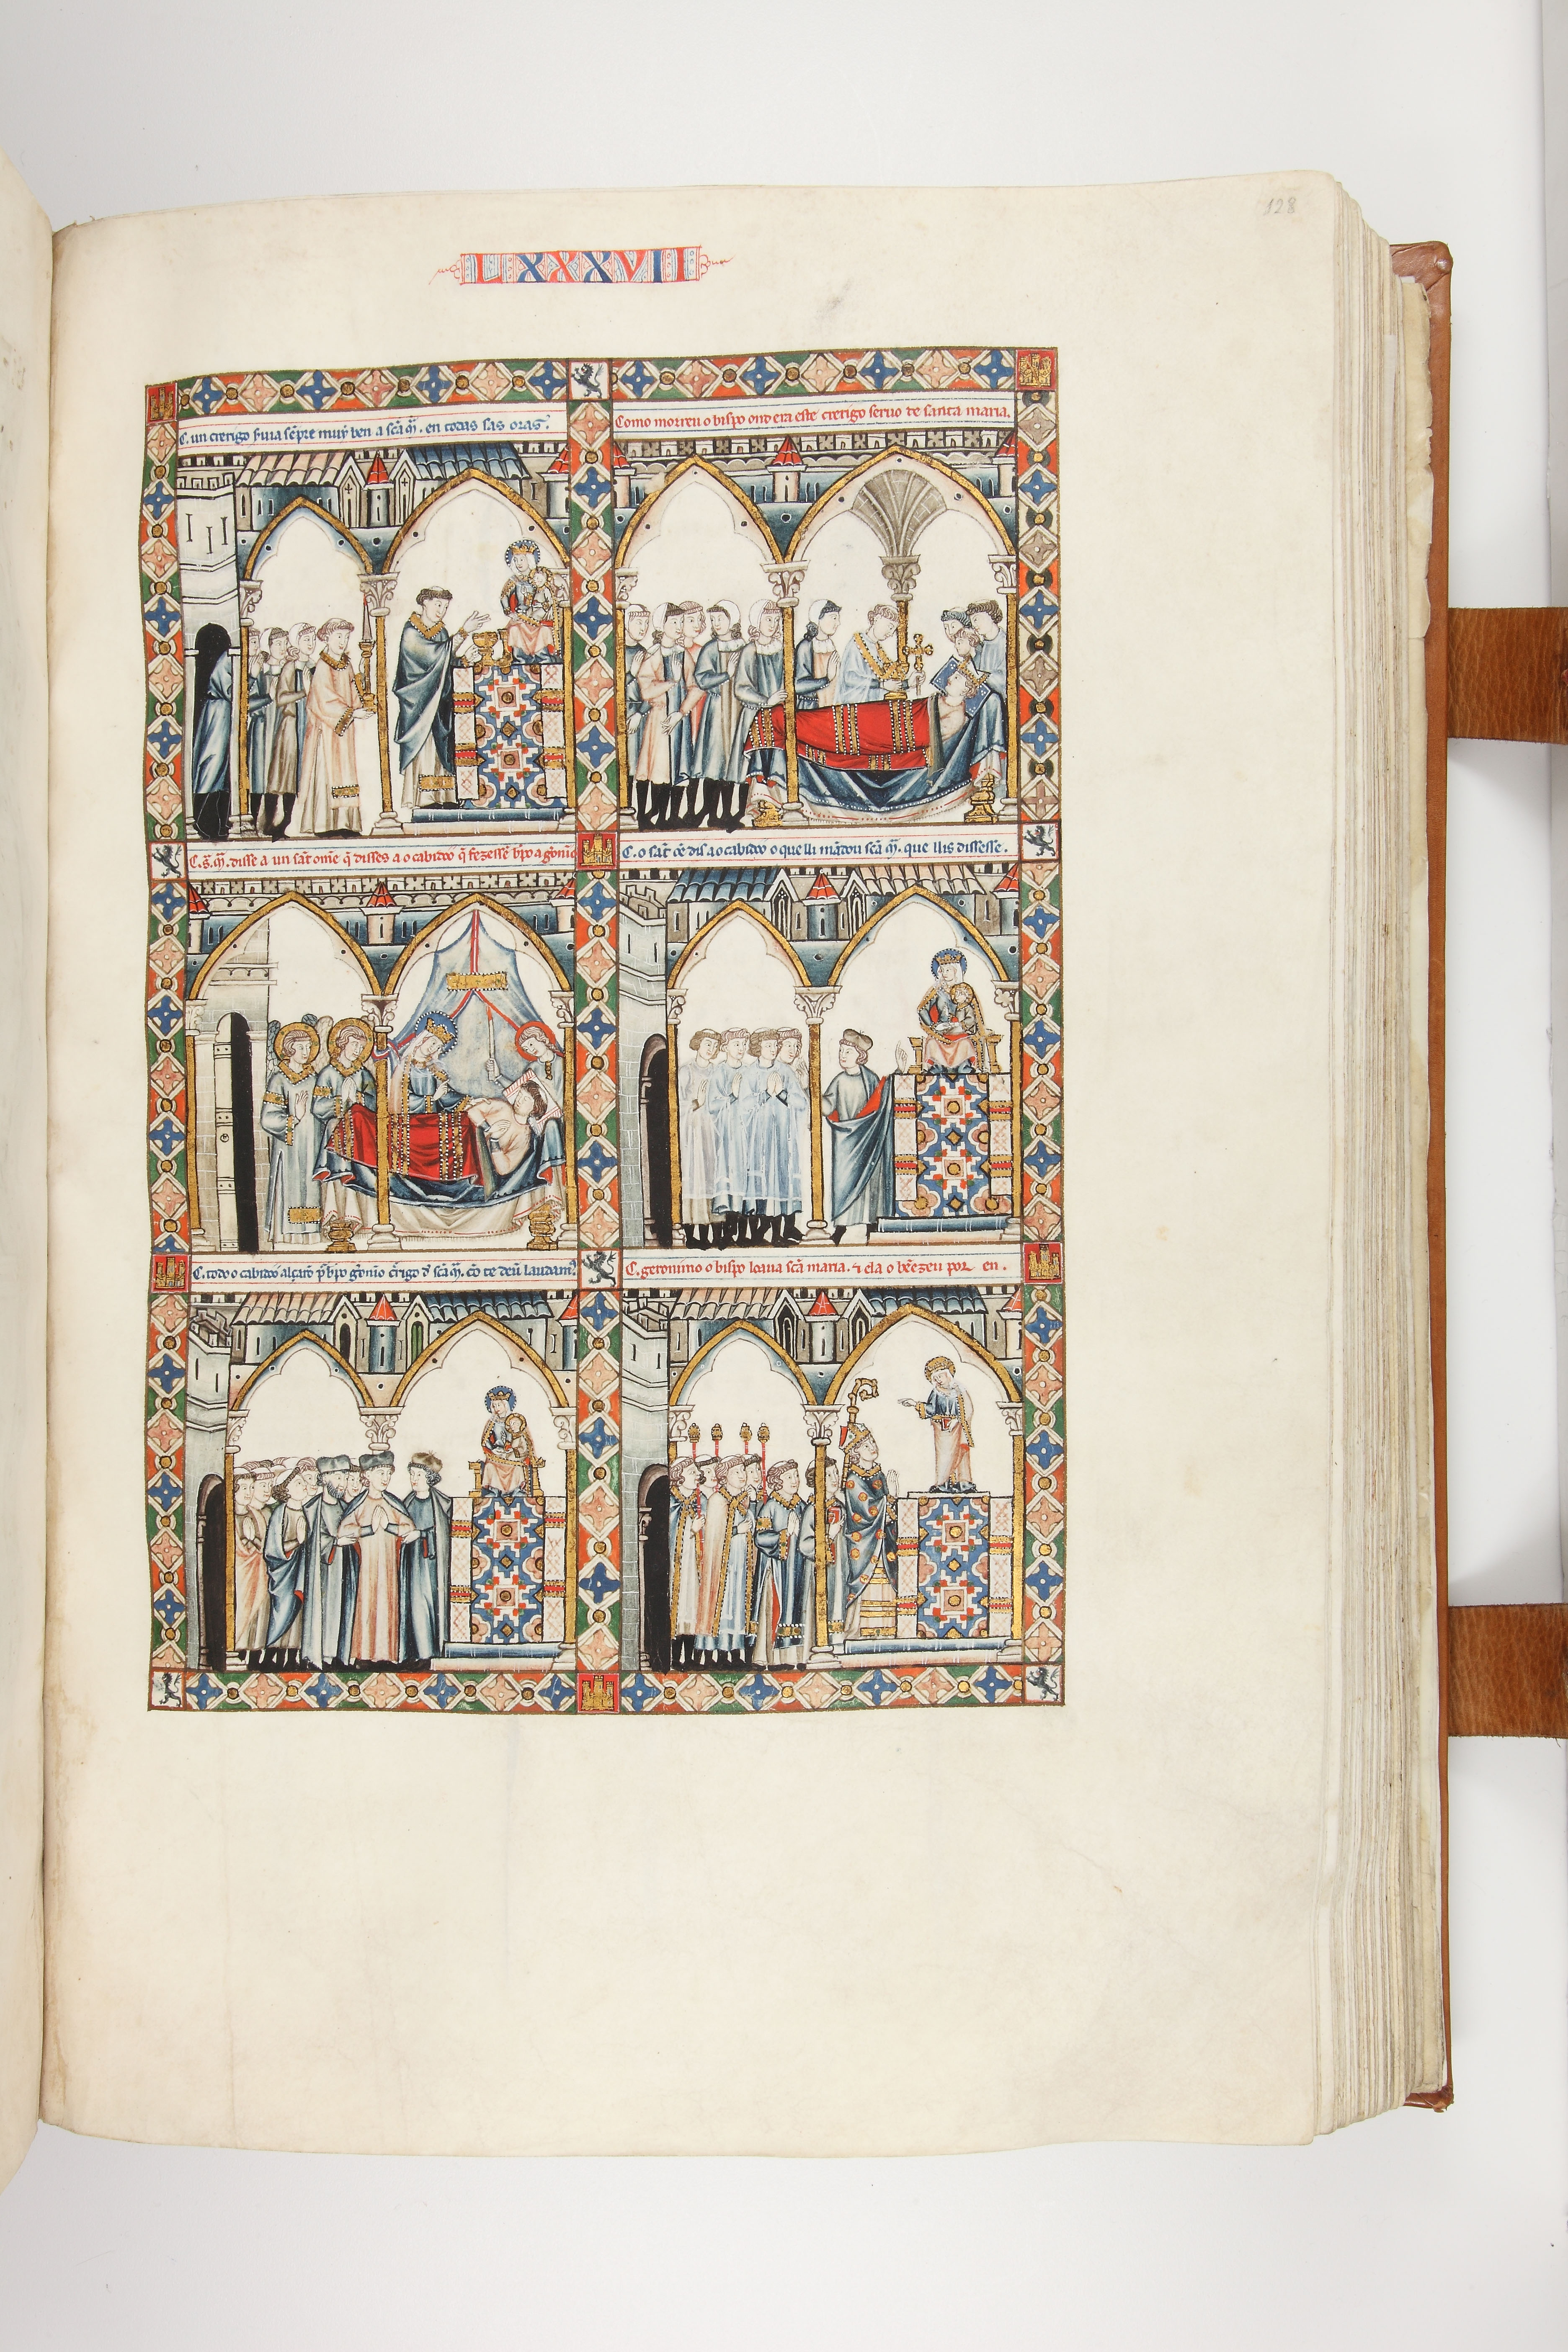 128
LXXXVII
C. un crerigo s̃uia sẽpre muy ben a sc̃a m̃. en todas sas oras.
Como morreu o bispo ond era este crerigo seruo de santa maria.
C. s̃. m̃. disse a un sãt om̃e q̃ disses a o cabidoo q̃ fezessẽ bp̃o a g̃onimo
C. o sãt om̃e dis a o cabidoo o que lli mãdou sc̃a m̃. que llis dissesse.
C. todo o cabidoo alçarõ p̃ bp̃o g̃onimo c̃rigo d̃ sc̃a m̃. cõ te deũ laudam9
C. geronimo o bispo loaua sc̃a maria. ⁊ ela o bẽezeu por en.